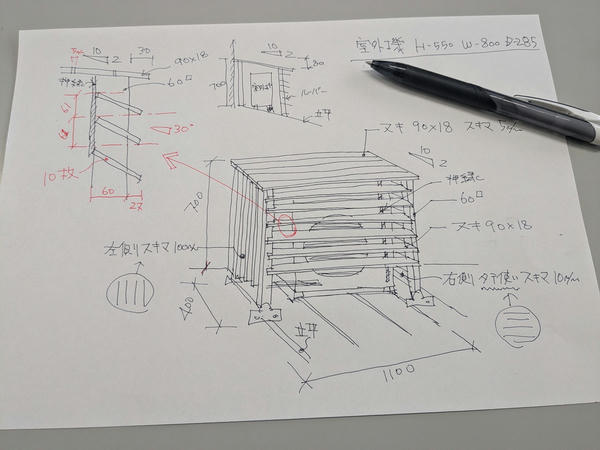 室外機 H-550 W-800 D-285
10
2
30
90×18
60□
30°
10枚
60
27
10
2
80
700
ルーバー
ヌキ 90×18 スキマ 5㎜
10
2
押縁
60□
ヌキ 90×18
700
左側 スキマ 10㎜
右側 タテ使い スキマ 10㎜
400
1100